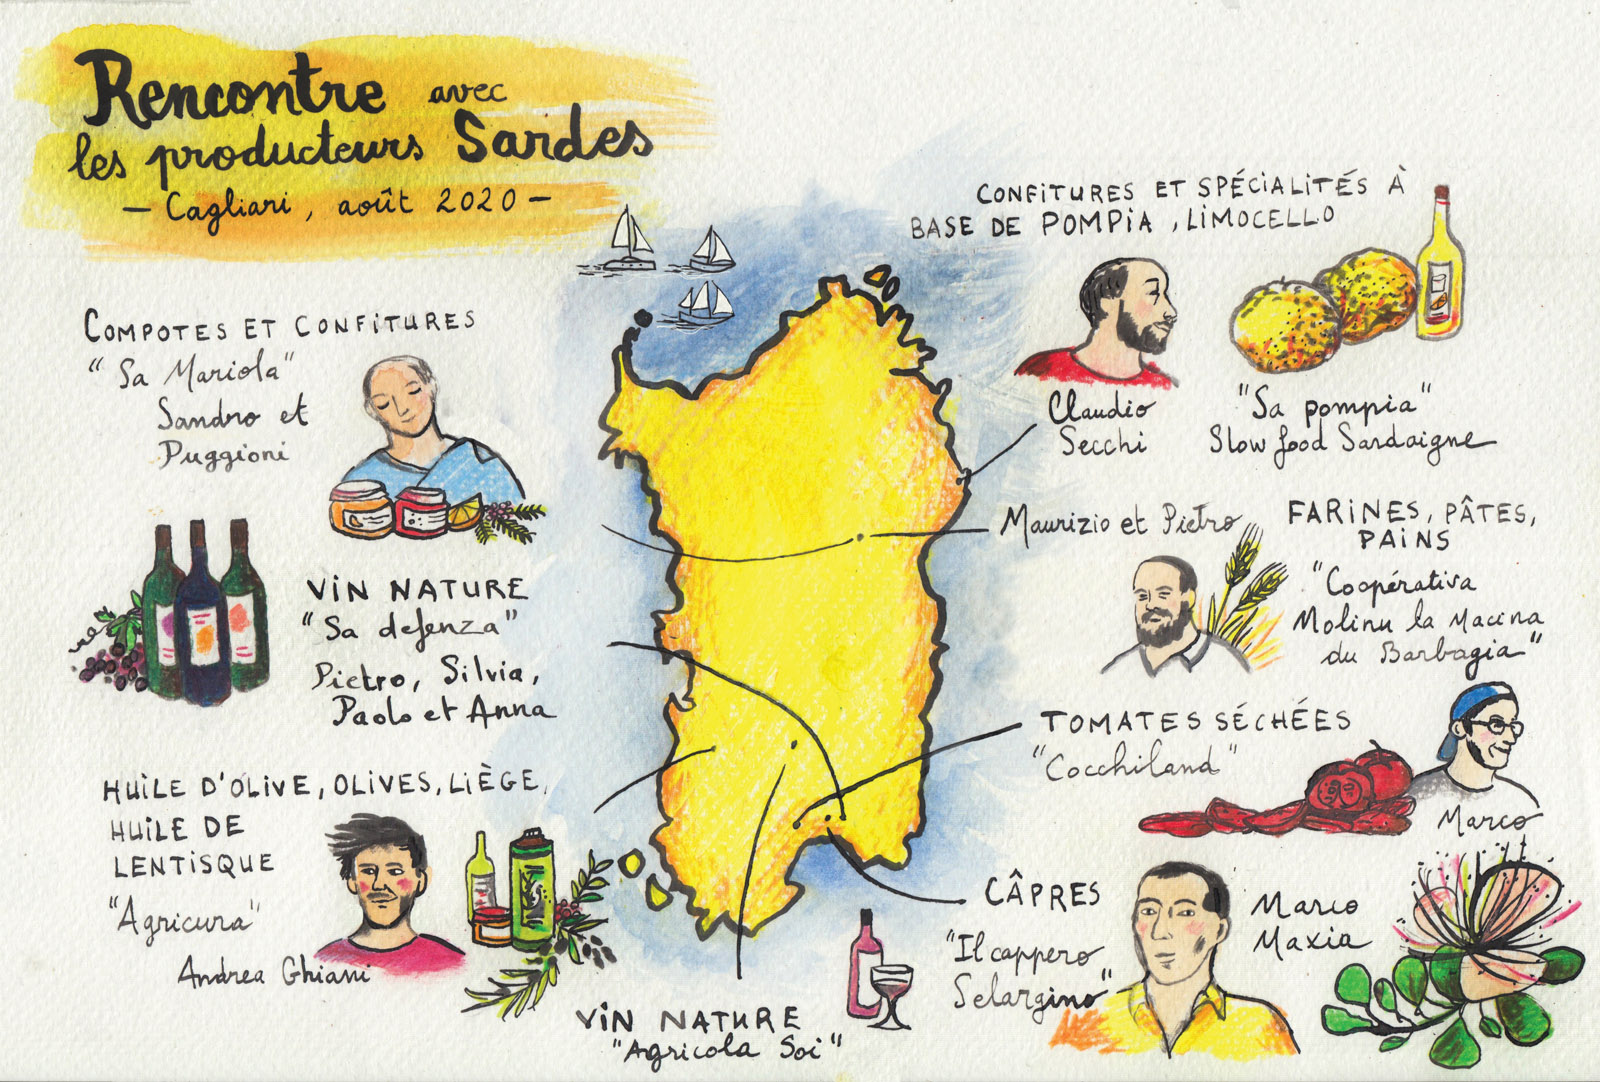 Rencontre avec
les producteurs Sardes
— Cagliari, août 2020 —
CONFITURES ET SPÉCIALITÉS À
BASE DE POMPIA, LIMOCELLO
Claudio
Secchi
"Sa pompia"
Slow food Sardaigne
COMPOTES ET CONFITURES
"Sa Mariola"
Sandro et
Puggioni
Maurizio et Pietro
FARINES, PÂTES,
PAINS
"Coopérativa
Molinu la Macina
du Barbagia"
VIN NATURE
"Sa defenza"
Pietro, Silvia,
Paolo et Anna
TOMATES SÉCHÉES
"Cocchiland"
Marco
HUILE D'OLIVE, OLIVES, LIÈGE,
HUILE DE
LENTISQUE
"Agricura"
Andrea Ghiani
CÂPRES
"Il cappero
Selargino"
Marco
Maxia
VIN NATURE
"Agricola Soi"